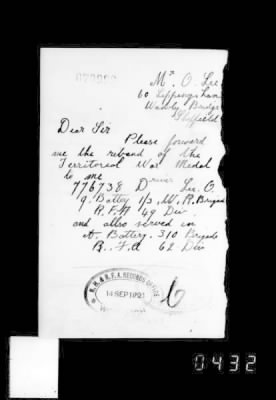 Mr O. Lee
60 Leppings Lane
Wadsly Bridge
Sheffield
Dear Sir
Please forward
me the reband of the
Territorial War Medal
to me
776738 Driver Lee. O.
9. Battey 1/3 W. R. Brigade
R. F. A 49 Div.
and allso served in
A. Battery. 310 Brigade
R. F. A 62 Div
R.H. & R.F.A. RECORDS OFFICE
14 SEP 1921
0432